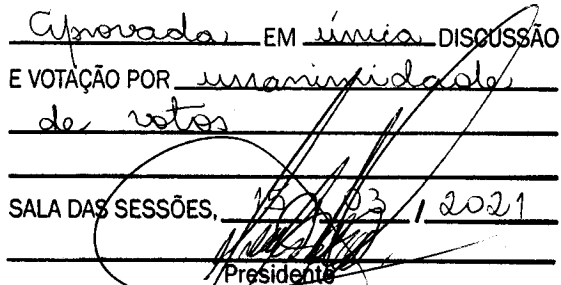 Aprovada EM única DISCUSSÃO
E VOTAÇÃO POR unanimidade
de votos
SALA DAS SESSÕES, / 03 / 2021
Presidente